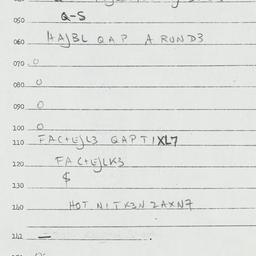 050
Q-S
060 HAJBL QAP A RUND3
070 0
080 0
090 0
100 0
110 FAC+EJL3 QAPTIXL7
120 FAC+EJLK3
$
130
140 HOT NITX3N 2AXN7
142 –